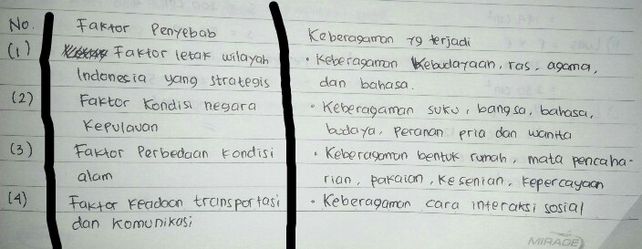 No. Faktor Penyebab Keberagaman yg terjadi
(1) Faktor letak wilayah • Keberagaman Kebudayaan, ras, agama,
Indonesia yang strategis dan bahasa.
(2) Faktor Kondisi negara • Keberagaman suku, bangsa, bahasa,
Kepulauan budaya, peranan pria dan wanita
(3) Faktor Perbedaan kondisi • Keberagaman bentuk rumah, mata pencaha-
alam rian, pakaian, kesenian, kepercayaan
(4) Faktor keadaan transportasi • Keberagaman cara interaksi sosial
dan komunikasi
MIRAGE